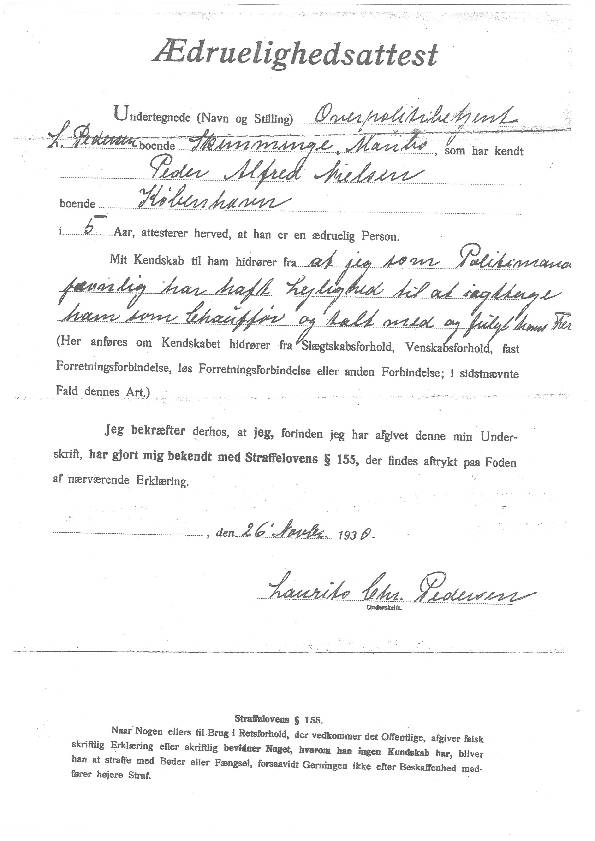 Ædruelighedsattest
Undertegnede (Navn og Stilling) Overpolitibetjent
L. Pedersen boende Skemminge, Maribo, som har kendt
Peder Alfred Nielsen
boende København
i 5 Aar, attesterer herved, at han er en ædruelig Person.
Mit Kendskab til ham hidrører fra at jeg som Politimand
jævnlig har haft Lejlighed til at iagttage
ham som Chauffør og talt med og fulgt hans
(Her anføres om Kendskabet hidrører fra Slægtskabsforhold, Venskabsforhold, fast
Forretningsforbindelse, løs Forretningsforbindelse eller anden Forbindelse; i sidstnævnte
Fald dennes Art.)
Jeg bekræfter derhos, at jeg, forinden jeg har afgivet denne min Under-
skrift, har gjort mig bekendt med Straffelovens § 155, der findes aftrykt paa Foden
af nærværende Erklæring.
, den 26' Novbr. 1930.
Laurits Chr. Pedersen
Underskrift.
Straffelovens § 155.
Naar Nogen ellers til Brug i Retsforhold, der vedkommer det Offentlige, afgiver falsk
skriftlig Erklæring eller skriftlig bevidner Noget, hvorom han ingen Kundskab har, bliver
han at straffe med Bøder eller Fængsel, forsaavidt Gerningen ikke efter Beskaffenhed med-
fører højere Straf.